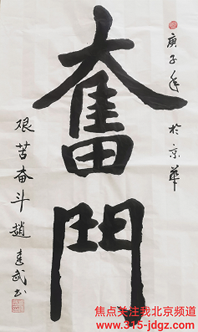 庚子年於京華
奮鬥
艰苦奋斗 趙武书
焦点关注北京频道
www.315-jdgz.com